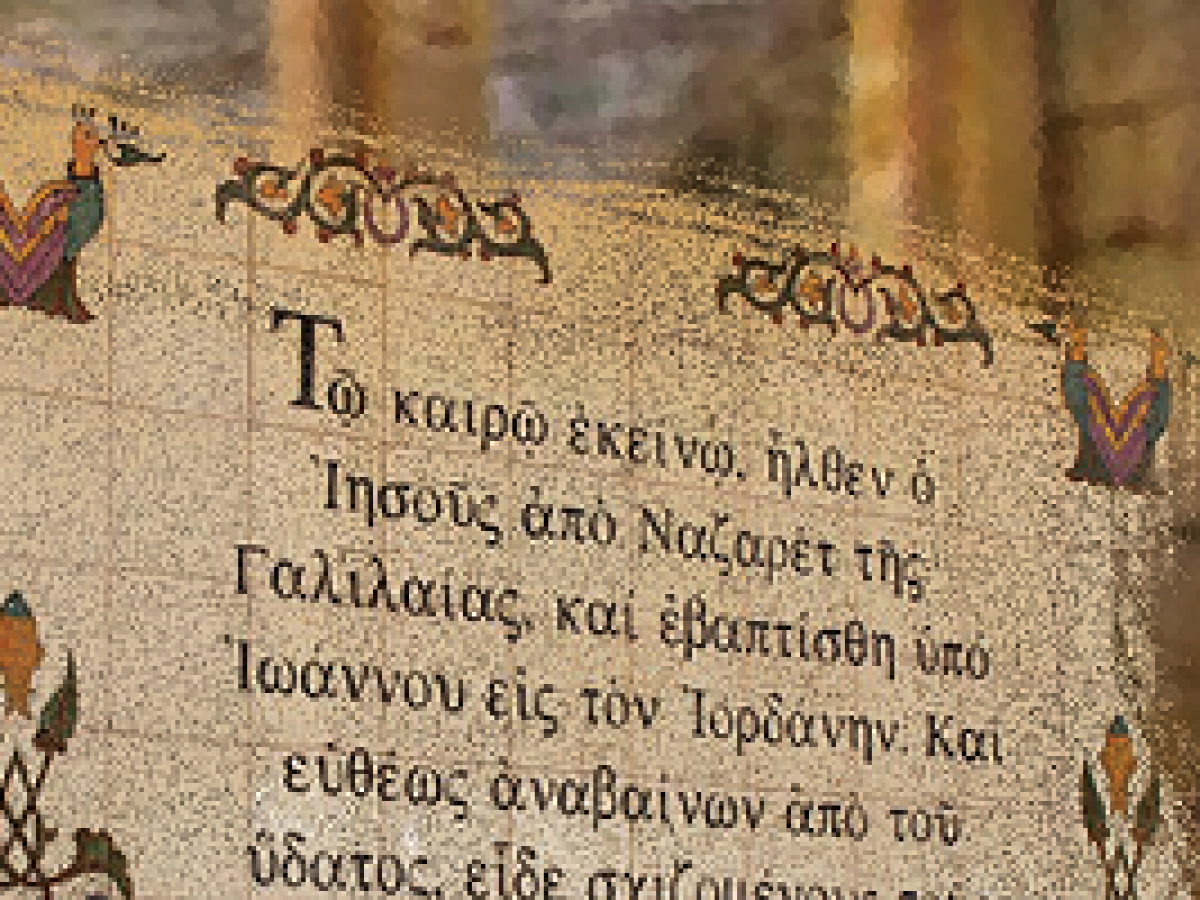 Τῷ καιρῷ ἐκείνῳ, ἦλθεν ὁ
Ἰησοῦς ἀπὸ Ναζαρὲτ τῆς
Γαλιλαίας, καὶ ἐβαπτίσθη ὑπὸ
Ἰωάννου εἰς τὸν Ἰορδάνην. Καὶ
εὐθέως ἀναβαίνων ἀπὸ τοῦ
ὕδατος, εἶδε σχιζομένους